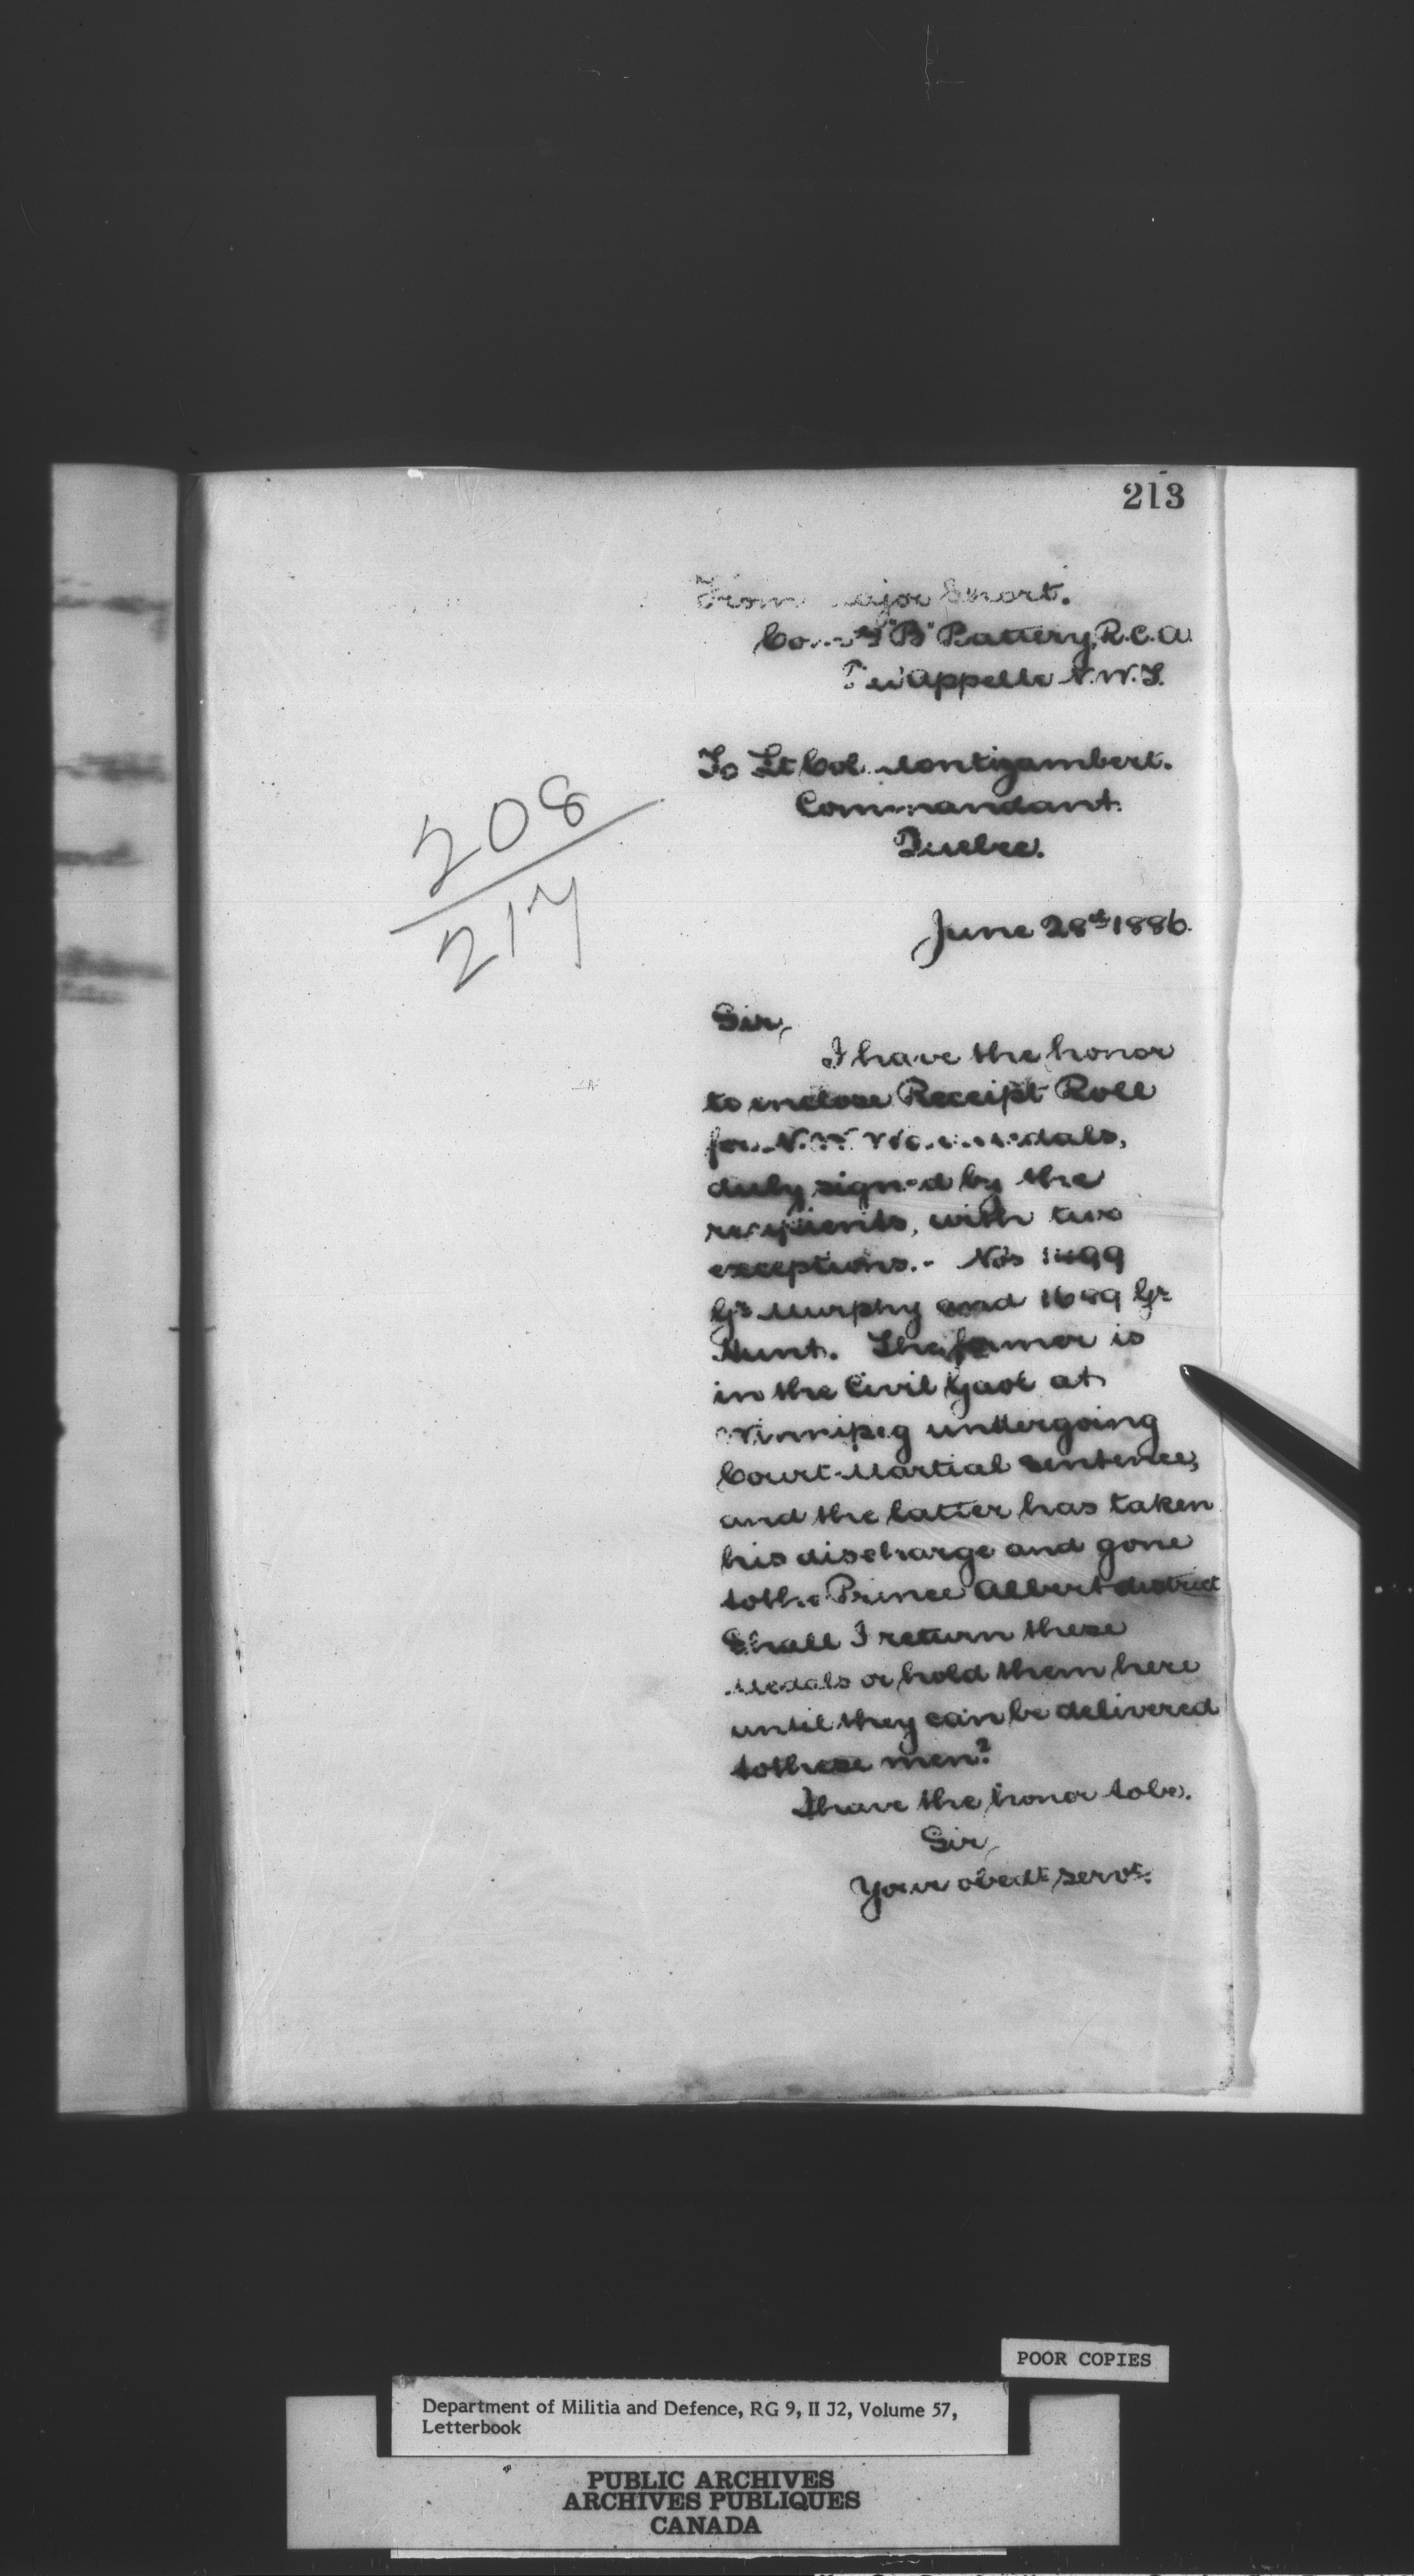 213
From Major Short.
Comg "B" Battery, R.C.A.
Qu'Appelle N.W.T.
To Lt Col Montizambert.
Commandant.
Quebec.
208
217
June 28th 1886.
Sir,
I have the honor
to enclose Receipt Roll
for N.W. medals,
duly signed by the
recipients, with two
exceptions. - Nos
Gr Murphy and Gr
Hunt. The former is
in the Civil Gaol at
Winnipeg undergoing
Court-Martial sentence,
and the latter has taken
his discharge and gone
to the Prince Albert district
Shall I return these
Medals or hold them here
until they can be delivered
to these men?
I have the honor to be.
Sir,
Your obedt servt.
POOR COPIES
Department of Militia and Defence, RG 9, II J2, Volume 57,
Letterbook
PUBLIC ARCHIVES
ARCHIVES PUBLIQUES
CANADA